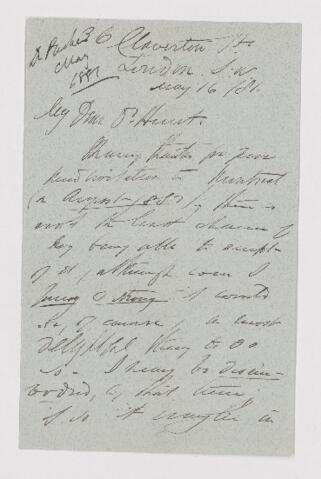 36 Claverton St
London S.W
May 16 /81.
May
1881
My Dear Dr Hunt.
Many thanks for your
kind invitation to Montreal
in August 1882, there is
not the least chance of
my being able to accept
of it, although were I
young & strong it would
be, of course, a most
delightful thing to do
so - I may be disem-
bodied, by that time,
if so it might